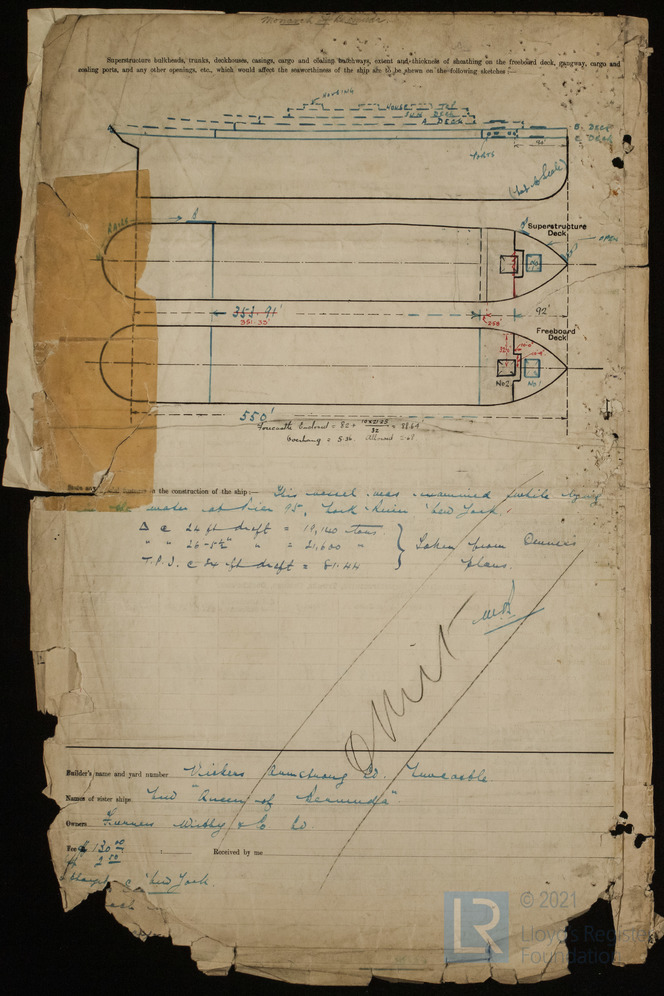 Monarch of Bermuda.
Superstructure bulkheads, trunks, deckhouses, casings, cargo and coaling hatchways, extent and thickness of sheathing on the freeboard deck, gangway, cargo and
coaling ports, and any other openings, etc., which would affect the seaworthiness of the ship are to be shown on the following sketches :—
HOUSING
HOUSE TOP
SUN DECK
A DECK
B. DECK
C. DECK
PORTS
(Not to Scale)
Superstructure
Deck
OPEN
353.91'
351.33'
92'
Freeboard
Deck
No2
No1
550'
Forecastle Enclosed = 82 +
Overhang = 5.36 Allowed
in the construction of the ship:— This vessel was examined while lying
water at Pier 95, New York.
Δ @ 24 ft draft = 19,140 tons
" " 26-5½" " = 21,600 "
Taken from Owners
plans.
T.P.I. @ 24 ft draft = 81.44
Omit
Builder's name and yard number Vickers Armstrong Ld. Newcastle
Names of sister ships "Queen of Bermuda".
Owners Furness Withy & Co Ld
Fee $ 130.00
Received by me
New York.
LR
© 2021
Lloyd's Register
Foundation